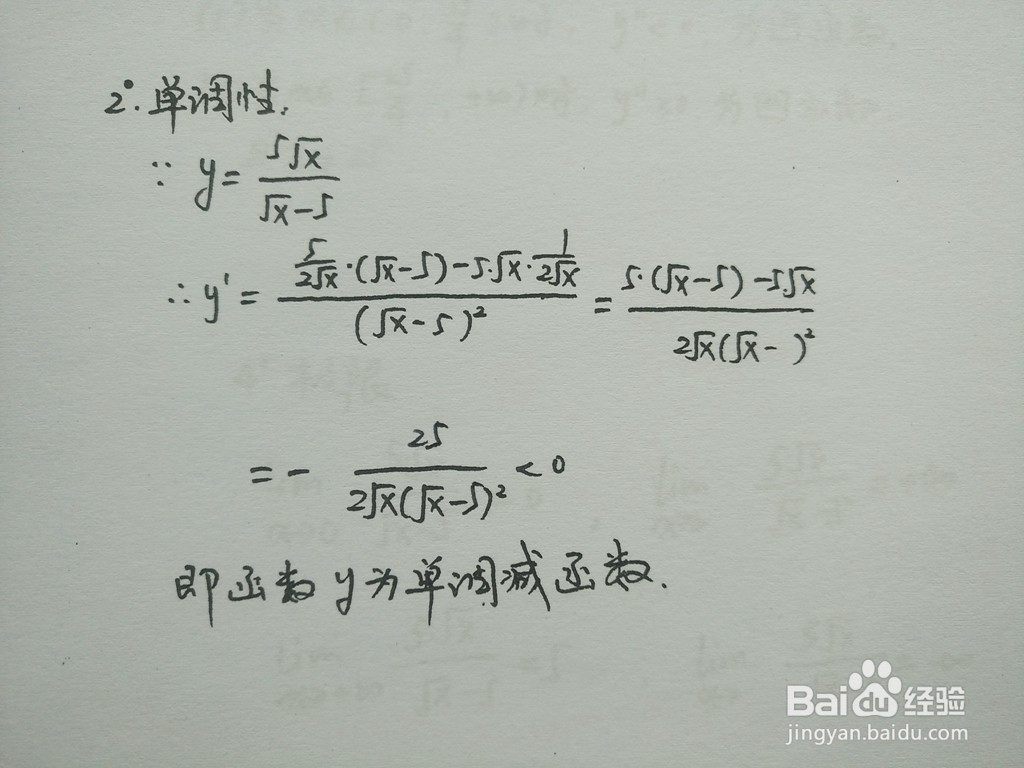 2°.单调性.
∵ y = 5√x / (√x-5)
∴ y' = [5/(2√x)·(√x-5)-5·√x·1/(2√x)] / (√x-5)² = [5·(√x-5)-5√x] / [2√x(√x- )²]
= - 25 / [2√x(√x-5)²] < 0
即函数y为单调减函数.
Baidu经验
jingyan.baidu.com